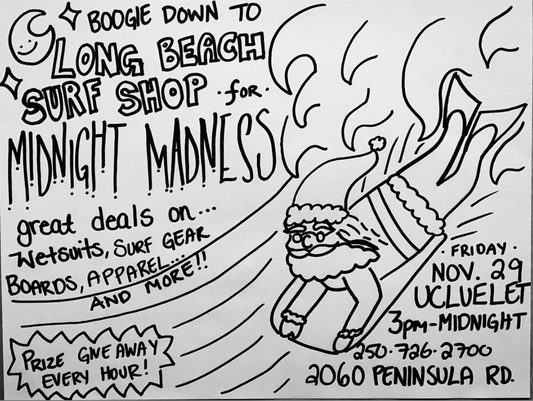 BOOGIE DOWN TO
LONG BEACH
SURF SHOP · for ·
MIDNIGHT MADNESS
great deals on...
Wetsuits, SURF GEAR
BOARDS, APPAREL...
AND MORE!!
PRIZE GIVE AWAY
EVERY HOUR!
· FRIDAY ·
NOV. 29
UCLUELET
3pm-MIDNIGHT
250·726·2700
2060 PENINSULA RD.